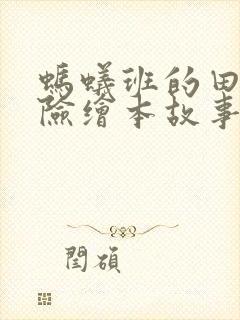 螞蟻班的田
險繪本故事
閏碩